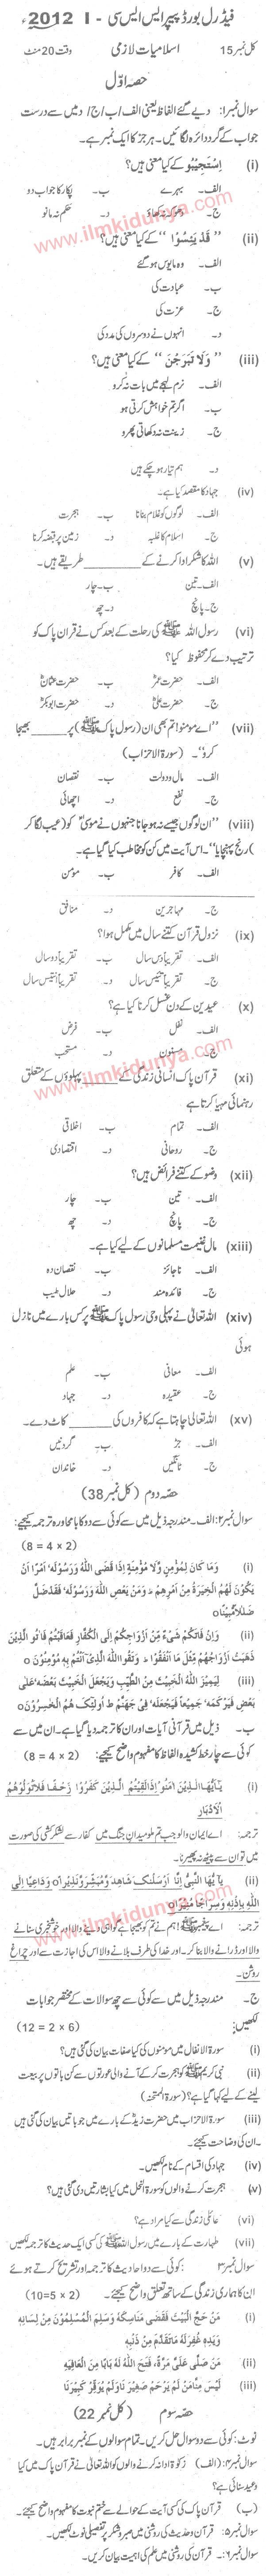 فیڈرل بورڈ پیپر ایس ایس سی - I - 2012ء
کل نمبر 15 اسلامیات لازمی وقت 20 منٹ
حصہ اوّل
سوال نمبر ا: دیے گئے الفاظ یعنی الف/ب/ج/د میں سے درست
جواب کے گرد دائرہ لگائیں۔ ہر جز کا ایک نمبر ہے۔
(i) اِسْتَجِیْبُوْ کے کیا معنی ہیں؟
الف۔ بہرے ب۔ پکار کا جواب دو
ج۔ دھوکہ نہ کھاؤ د۔ حکم نہ مانو
(ii) ’’ قَدْ یَئِسُوْا ‘‘ کے کیا معنی ہیں؟
الف۔ وہ مایوس ہو گئے
ب۔ عبادت کی
ج۔ عزت کی
د۔ انہوں نے دوسروں کی مدد کی
(iii) ’’ وَلَا تَبَرَّجْنَ ‘‘ کے کیا معنی ہیں؟
الف۔ نرم لہجے میں بات نہ کرو
ب۔ اگر تم خواہش کرتی ہو
ج۔ زینت نہ دکھاتی پھرو
د۔ ہم تیار ہو چکے ہیں
(iv) جہاد کا مقصد کیا ہے۔
الف۔ لوگوں کو غلام بنانا ب۔ ہجرت
ج۔ اسلام کا غلبہ د۔ زمین پر قبضہ کرنا
(v) اللہ کا شکر ادا کرنے کے ______ طریقے ہیں۔
الف۔ تین ب۔ چار
ج۔ پانچ د۔ چھ
(vi) رسول اللہ ﷺ کی رحلت کے بعد کس نے قرآن پاک کو
ترتیب دے کر محفوظ کیا؟
الف۔ حضرت عمرؓ ب۔ حضرت عثمانؓ
ج۔ حضرت علیؓ د۔ حضرت ابوبکرؓ
(vii) ’’اے مومنو! تم بھی ان (رسول پاک ﷺ) پر ______ بھیجا
کرو‘‘۔ (سورۃ الاحزاب)
الف۔ مال و دولت ب۔ نقصان
ج۔ نفع د۔ اچھائی
(viii) ’’ان لوگوں جیسے نہ ہو جانا جنہوں نے موسیٰؑ کو (عیب لگا کر
) رنج پہنچایا‘‘۔ اس آیت میں کن کو مخاطب کیا گیا ہے۔
الف۔ کافر ب۔ مومن
ج۔ مہاجرین د۔ منافق
(ix) نزول قرآن کتنے سال میں مکمل ہوا؟
الف۔ تقریباً دس سال ب۔ تقریباً دو سال
ج۔ تقریباً تئیس سال د۔ تقریباً انتیس سال
(x) عیدین کے دن غسل کرنا کیا ہے؟
الف۔ نفل ب۔ فرض
ج۔ مسنون د۔ مستحب
(xi) قرآن پاک انسانی زندگی کے ______ پہلوؤں کے متعلق
رہنمائی مہیا کرتا ہے
الف۔ تمام ب۔ اخلاقی
ج۔ روحانی د۔ اقتصادی
(xii) وضو کے کتنے فرائض ہیں؟
الف۔ تین ب۔ چار
ج۔ پانچ د۔ چھ
(xiii) مال غنیمت مسلمانوں کے لیے کیا ہے۔
الف۔ ناجائز ب۔ نقصان دہ
ج۔ فائدہ مند د۔ حلال طیب
(xiv) اللہ تعالیٰ نے پہلی وحی رسول پاک ﷺ پر کس بارے میں نازل
ہوئی
الف۔ معافی ب۔ علم
ج۔ عقیدہ د۔ جہاد
(xv) اللہ تعالیٰ چاہتا ہے کہ کافروں کی ______ کاٹ دے۔
الف۔ جڑ ب۔ گردنیں
ج۔ ٹانگیں د۔ خاندان
حصہ دوم (کل نمبر 38)
سوال نمبر ۲: الف۔ مندرجہ ذیل میں سے کوئی سے دو کا بامحاورہ ترجمہ کیجیے:
(8 = 4 × 2)
(i) وَمَا کَانَ لِمُؤْمِنٍ وَّلَا مُؤْمِنَةٍ اِذَا قَضَی اللّٰہُ وَرَسُوْلُہٗ اَمْرًا اَنْ
یَّکُوْنَ لَھُمُ الْخِیَرَةُ مِنْ اَمْرِھِمْ ط وَمَنْ یَّعْصِ اللّٰہَ وَرَسُوْلَہٗ فَقَدْ ضَلَّ
ضَلٰلًا مُّبِیْنًا o
(ii) وَاِنْ فَاتَکُمْ شَیْءٌ مِّنْ اَزْوَاجِکُمْ اِلَی الْکُفَّارِ فَعَاقَبْتُمْ فَاٰتُوا الَّذِیْنَ
ذَھَبَتْ اَزْوَاجُھُمْ مِّثْلَ مَا اَنْفَقُوْا ط وَتَّقُوا اللّٰہَ الَّذِیْ اَنْتُمْ بِہٖ مُؤْمِنُوْنَ o
(iii) لِیَمِیْزَ اللّٰہُ الْخَبِیْثَ مِنَ الطَّیِّبِ وَیَجْعَلَ الْخَبِیْثَ بَعْضَہٗ عَلٰی
بَعْضٍ فَیَرْکُمَہٗ جَمِیْعًا فَیَجْعَلَہٗ فِیْ جَھَنَّمَ ط اُولٰٓئِکَ ھُمُ الْخٰسِرُوْنَ o
ب۔ ذیل میں قرآنی آیات اور ان کا ترجمہ دیا گیا ہے۔ ان میں سے
کوئی سے چار خط کشیدہ الفاظ کا مفہوم واضح کیجیے: (8 = 4 × 2)
(i) یٰٓاَیُّھَا الَّذِیْنَ اٰمَنُوْا اِذَا لَقِیْتُمُ الَّذِیْنَ کَفَرُوْا زَحْفًا فَلَا تُوَلُّوْھُمُ
الْاَدْبَارَ
ترجمہ: اے اہل ایمان والو جب تم ملو میدان جنگ میں کفار سے لشکر کشی کی صورت
میں تو ان سے پیٹھ نہ پھیرنا۔
(ii) یٰٓاَیُّھَا النَّبِیُّ اِنَّا اَرْسَلْنٰکَ شَاھِدًا وَّمُبَشِّرًا وَّنَذِیْرًا o وَّدَاعِیًا اِلَی
اللّٰہِ بِاِذْنِہٖ وَسِرَاجًا مُّنِیْرًا o
ترجمہ: اے پیغمبر ﷺ! ہم نے تم کو بھیجا ہے گواہی دینے والا اور خوشخبری سنانے
والا اور ڈرانے والا بنا کر۔ اور خدا کی طرف بلانے والا اس کی اجازت سے اور چراغ
روشن۔
ج۔ مندرجہ ذیل میں سے کوئی سے چھ سوالات کے مختصر جوابات
لکھیں: (12 = 2 × 6)
(i) سورۃ الانفال میں مومنوں کی کیا صفات بیان کی گئی ہیں؟
(ii) نبی کریم ﷺ کو ہجرت کر کے آنے والی عورتوں سے کن باتوں پر بیعت
لینے کے لیے کہا گیا ہے؟ (سورۃ الممتحنہ)
(iii) سورۃ الاحزاب میں حضرت زیدؓ کے بارے میں جو باتیں بیان کی گئی ہیں
۔ ان کی وضاحت کیجئے۔
(iv) جہاد کی اقسام کے نام لکھیں۔
(v) ہجرت کرنے والوں کو سورۃ النحل میں کیا بشارتیں دی گئی ہیں؟
(vi) عائلی زندگی سے کیا مراد ہے؟
(vii) طہارت کے بارے میں رسول اللہ ﷺ کی کسی ایک حدیث کا ترجمہ لکھیں؟
سوال نمبر ۳: کوئی سے دو احادیث کا ترجمہ اور تشریح کرتے ہوئے
ان کا ہماری زندگی کے ساتھ تعلق واضح کیجئے۔ (10=5 × 2)
(i) مَنْ حَجَّ الْبَیْتَ فَقَضٰی مَنَاسِکَہٗ وَسَلِمَ الْمُسْلِمُوْنَ مِنْ لِسَانِہٖ
وَیَدِہٖ غُفِرَ لَہٗ مَا تَقَدَّمَ مِنْ ذَنْبِہٖ
(ii) مَنْ صَلّٰی عَلَیَّ مَرَّةً، فَتَحَ اللّٰہُ لَہٗ بَابًا مِنَ الْعَافِیَةِ
(iii) لَیْسَ مِنَّا مَنْ لَّمْ یَرْحَمْ صَغِیْرَنَا وَلَمْ یُوَقِّرْ کَبِیْرَنَا
حصہ سوم (کل نمبر 22)
نوٹ: کوئی سے دو سوال حل کریں۔ تمام سوالوں کے نمبر برابر ہیں۔
سوال نمبر ۴: (الف) زکوٰۃ ادا نہ کرنے والوں کو اللہ تعالیٰ نے قرآن پاک میں کیا
وعید سنائی ہے؟
(ب) قرآن پاک کی کسی آیت کے حوالے سے ختم نبوت کا مفہوم واضح کیجئے۔
سوال نمبر ۵: قرآن و حدیث کی روشنی میں صبر و شکر پر تفصیلی نوٹ لکھیں۔
سوال نمبر ۶: قرآن کی روشنی میں علم کی اہمیت بیان کریں۔
www.ilmkidunya.com
www.ilmkidunya.com
www.ilmkidunya.com
www.ilmkidunya.com